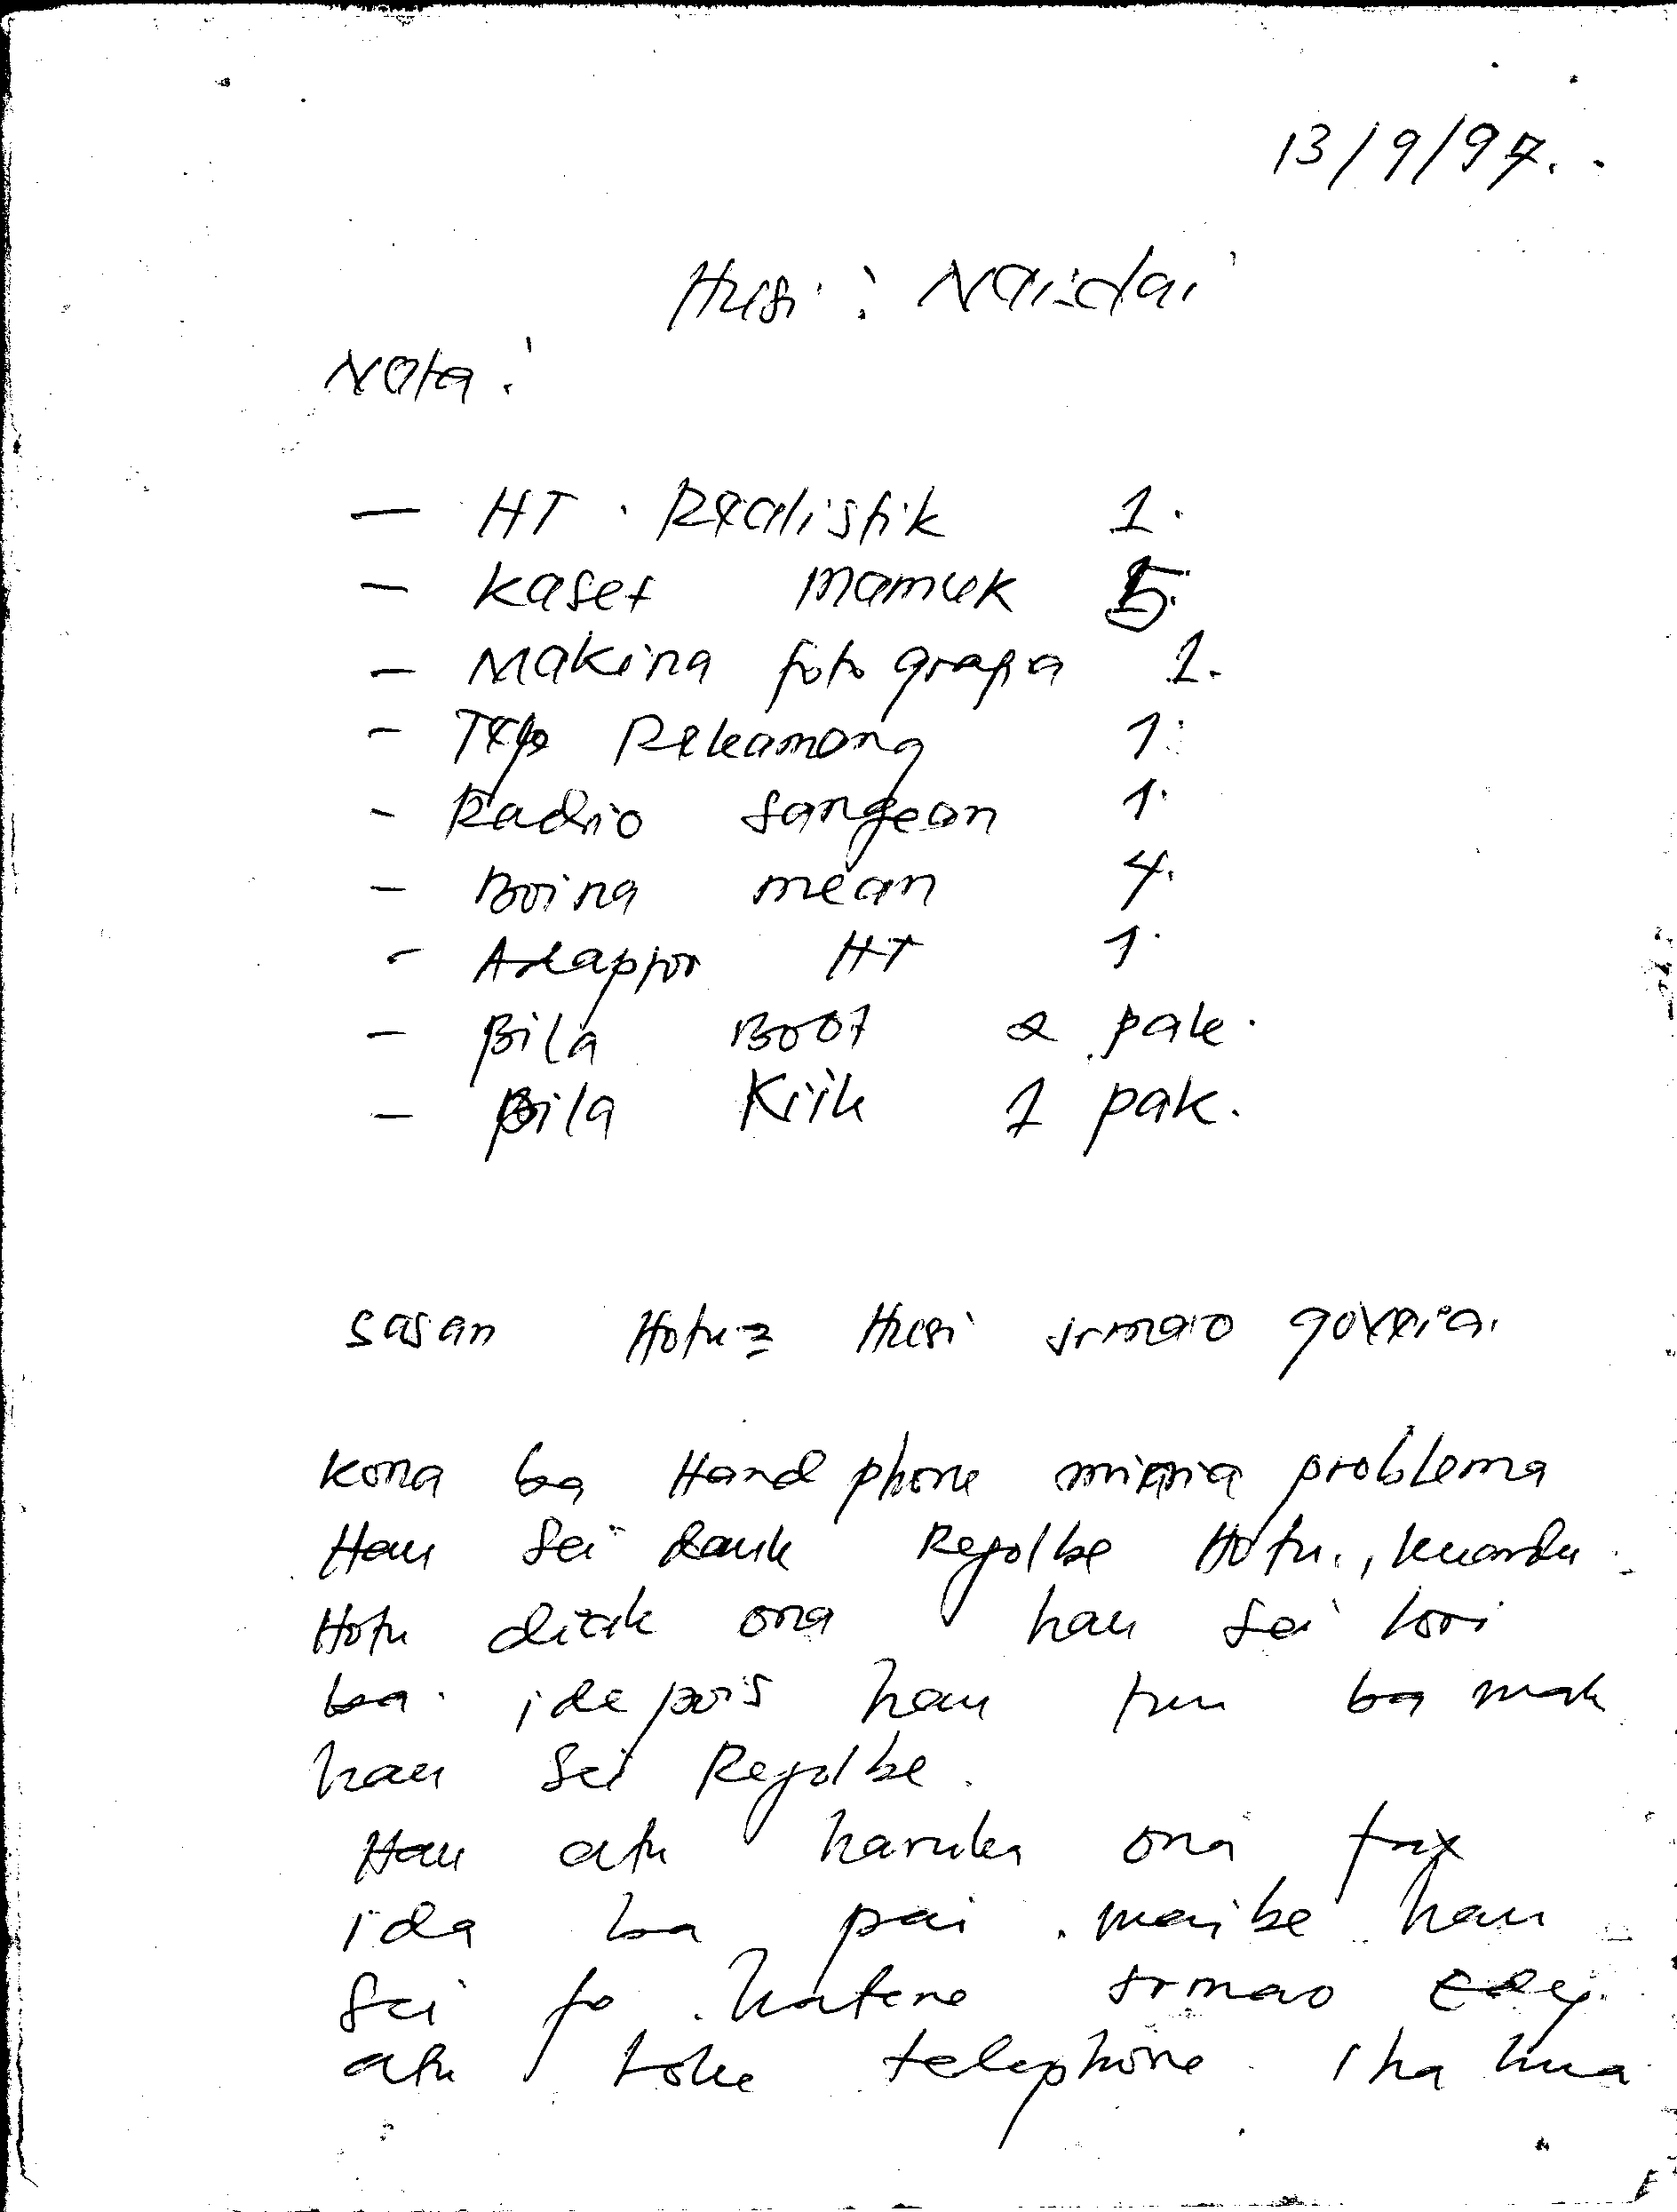 13/9/97.
Husi : Naidai
Nota :
- HT. Realistik 1.
- Kaset mamuk 5.
- Makina foto grafia 1.
- Tep Rekamang 1.
- Radio sangean 1.
- Boina mean 4.
- Adaptor HT 1.
- Pila Boot 2 pak.
- Pila Kiik 1 pak.
sasan Hotu2 Husi irmao
kona ba Hand phone minia problema
Hau sei dauk Resolbe Hotu., kuandu
Hotu diak ona hau sei lori
ba. i depois hau tun ba mak
hau sei Resolbe.
Hau atu haruka ona fax
ida ba pai. maibe hau
sei fo hatene irmao
atu toke telephone iha kua